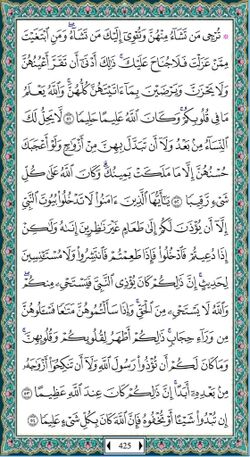 ۞ تُرْجِى مَن تَشَآءُ مِنْهُنَّ وَتُـْٔوِىٓ إِلَيْكَ مَن تَشَآءُ ۖ وَمَنِ ٱبْتَغَيْتَ
مِمَّنْ عَزَلْتَ فَلَا جُنَاحَ عَلَيْكَ ۚ ذَٰلِكَ أَدْنَىٰٓ أَن تَقَرَّ أَعْيُنُهُنَّ
وَلَا يَحْزَنَّ وَيَرْضَيْنَ بِمَآ ءَاتَيْتَهُنَّ كُلُّهُنَّ ۚ وَٱللَّهُ يَعْلَمُ
مَا فِى قُلُوبِكُمْ ۚ وَكَانَ ٱللَّهُ عَلِيمًا حَلِيمًا ٥١ لَّا يَحِلُّ لَكَ
ٱلنِّسَآءُ مِنۢ بَعْدُ وَلَآ أَن تَبَدَّلَ بِهِنَّ مِنْ أَزْوَٰجٍ وَلَوْ أَعْجَبَكَ
حُسْنُهُنَّ إِلَّا مَا مَلَكَتْ يَمِينُكَ ۗ وَكَانَ ٱللَّهُ عَلَىٰ كُلِّ
شَىْءٍ رَّقِيبًا ٥٢ يَـٰٓأَيُّهَا ٱلَّذِينَ ءَامَنُوا۟ لَا تَدْخُلُوا۟ بُيُوتَ ٱلنَّبِىِّ
إِلَّآ أَن يُؤْذَنَ لَكُمْ إِلَىٰ طَعَامٍ غَيْرَ نَـٰظِرِينَ إِنَىٰهُ وَلَـٰكِنْ
إِذَا دُعِيتُمْ فَٱدْخُلُوا۟ فَإِذَا طَعِمْتُمْ فَٱنتَشِرُوا۟ وَلَا مُسْتَـْٔنِسِينَ
لِحَدِيثٍ ۚ إِنَّ ذَٰلِكُمْ كَانَ يُؤْذِى ٱلنَّبِىَّ فَيَسْتَحْىِۦ مِنكُمْ ۖ
وَٱللَّهُ لَا يَسْتَحْىِۦ مِنَ ٱلْحَقِّ ۚ وَإِذَا سَأَلْتُمُوهُنَّ مَتَـٰعًا فَسْـَٔلُوهُنَّ
مِن وَرَآءِ حِجَابٍ ۚ ذَٰلِكُمْ أَطْهَرُ لِقُلُوبِكُمْ وَقُلُوبِهِنَّ ۚ
وَمَا كَانَ لَكُمْ أَن تُؤْذُوا۟ رَسُولَ ٱللَّهِ وَلَآ أَن تَنكِحُوٓا۟ أَزْوَٰجَهُۥ
مِنۢ بَعْدِهِۦٓ أَبَدًا ۚ إِنَّ ذَٰلِكُمْ كَانَ عِندَ ٱللَّهِ عَظِيمًا ٥٣
إِن تُبْدُوا۟ شَيْـًٔا أَوْ تُخْفُوهُ فَإِنَّ ٱللَّهَ كَانَ بِكُلِّ شَىْءٍ عَلِيمًا ٥٤
425